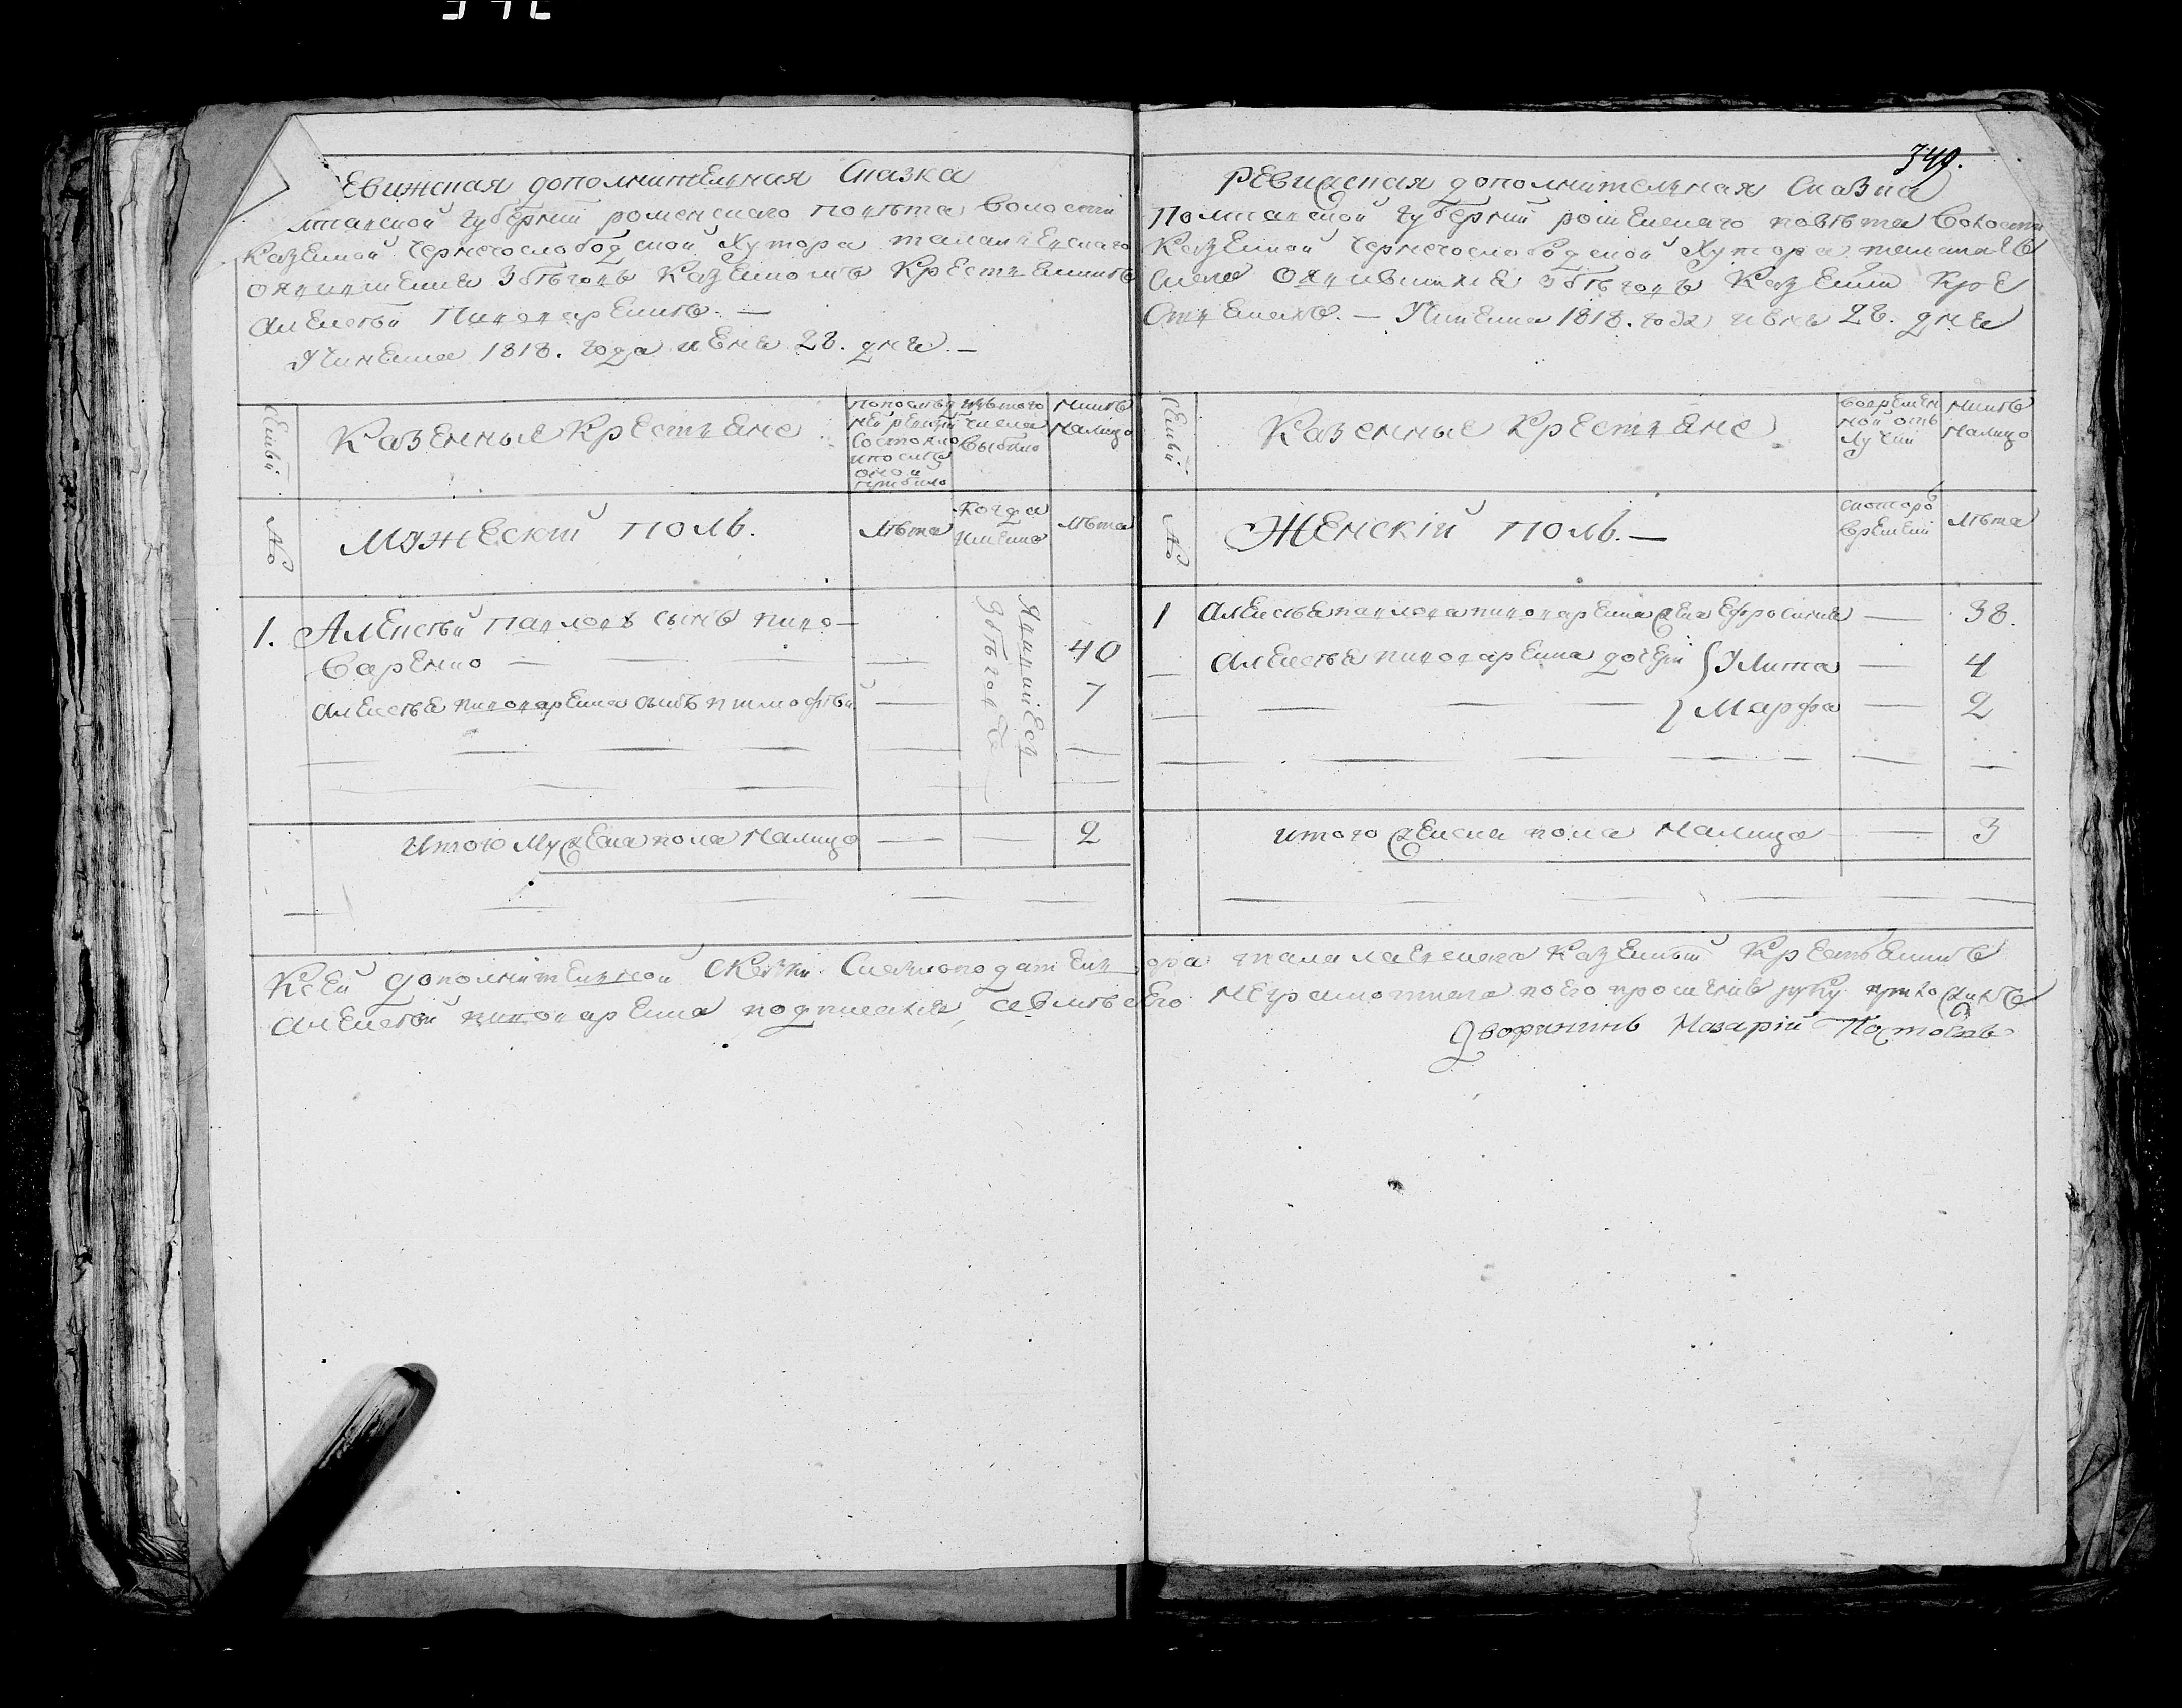 Ревижская дополнительная Сказка
лтавской губернии роменскаго повѣта волости
казенной чернечослободской Хутора талалаевскаго
оявившемся збѣговъ казенномъ крестьянинѣ
Алексѣй Пивоваренкѣ. —
Учинена 1818. года июня 28. дня. —
семьи
Казенные Крестьяне
попослѣд
ней ревизіи
состояло
ипослѣ
оной
прибыло
изътого
числа
выбыло
Нынѣ
налицо
№
Мужескій полъ.
лѣта
когда
именно
лѣта
1. Алексѣй Павловъ сынъ пиво-
варенко — — — 40
Алексѣя пивоваренка сынъ тимофѣй — 7
Явившіеся
збѣговъ
Итого мужеска пола налицо — — 2
349.
Ревижская дополнительная Сказка
Полтавской губерніи роменскаго повѣта волости
казенной чернечослободской Хутора талалаев
скаго оявившихся збѣговъ казенны кре
стьянахъ. — Учинена 1818. года июня 28. дня
семьи
Казенные Крестьяне
вовремен
ной отъ
лучки
Нынѣ
налицо
№
Женскій полъ. —
скоторо
времени
лѣта
1 Алексѣя павлова пивоваренка жена Ефросиния — 38.
Алексѣя пивоваренка дочери { Улита — 4
— — — { Марфа — 2
итого женска пола налицо — 3
Ксей дополнительной сказки Сказкоподатель хутора талалаевскаго казенный крестьянинъ
Алексѣй пивоваренко подписался, авмѣсто Его неграмотнаго поего прошению руку приложилъ
Дворянинъ Назарій